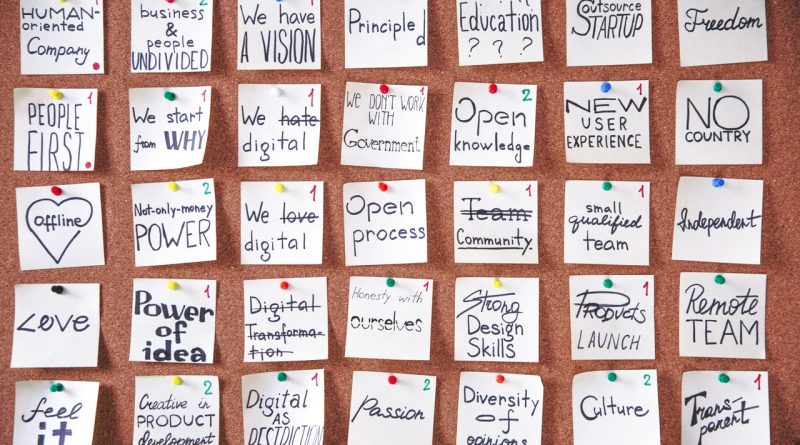 HUMAN-
oriented
Company
1
business
&
people
UNDIVIDED
2
We have
A VISION
Principled
Education
? ? ?
Outsource
STARTUP
Freedom
PEOPLE
FIRST
1
We start
from WHY
1
We hate
digital
1
We DON'T WORK
WITH
Government
1
Open
knowledge
2
NEW
USER
EXPERIENCE
1
NO
COUNTRY
offline
Not-only-money
POWER
2
We love
digital
1
Open
process
Team
Community
1
small
qualified
team
1
Independent
Love
Power
of
idea
1
Digital
Transforma-
tion
Honesty with
ourselves
1
Strong
Design
Skills
Products
LAUNCH
1
Remote
TEAM
feel
it
Creative in
PRODUCT
development
2
Digital
AS
RESTRICTION
1
Passion
2
Diversity
of
opinions
1
Culture
2
Trans-
parent
1